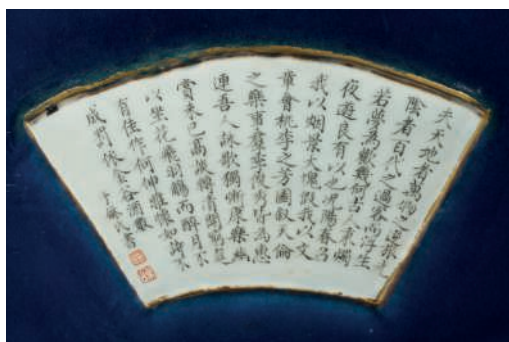 夫天地者萬物之逆旅光
陰者百代之過客而浮生
若夢為歡幾何古人秉燭
夜遊良有以也況陽春召
我以烟景大塊假我以文
章會桃李之芳園敘天倫
之樂事群季俊秀皆為惠
連吾人詠歌獨慚康樂幽
賞未已高談轉清開瓊筵
以坐花飛羽觴而醉月不
有佳作何伸雅懷如詩不
成罰依金谷酒數
氏書